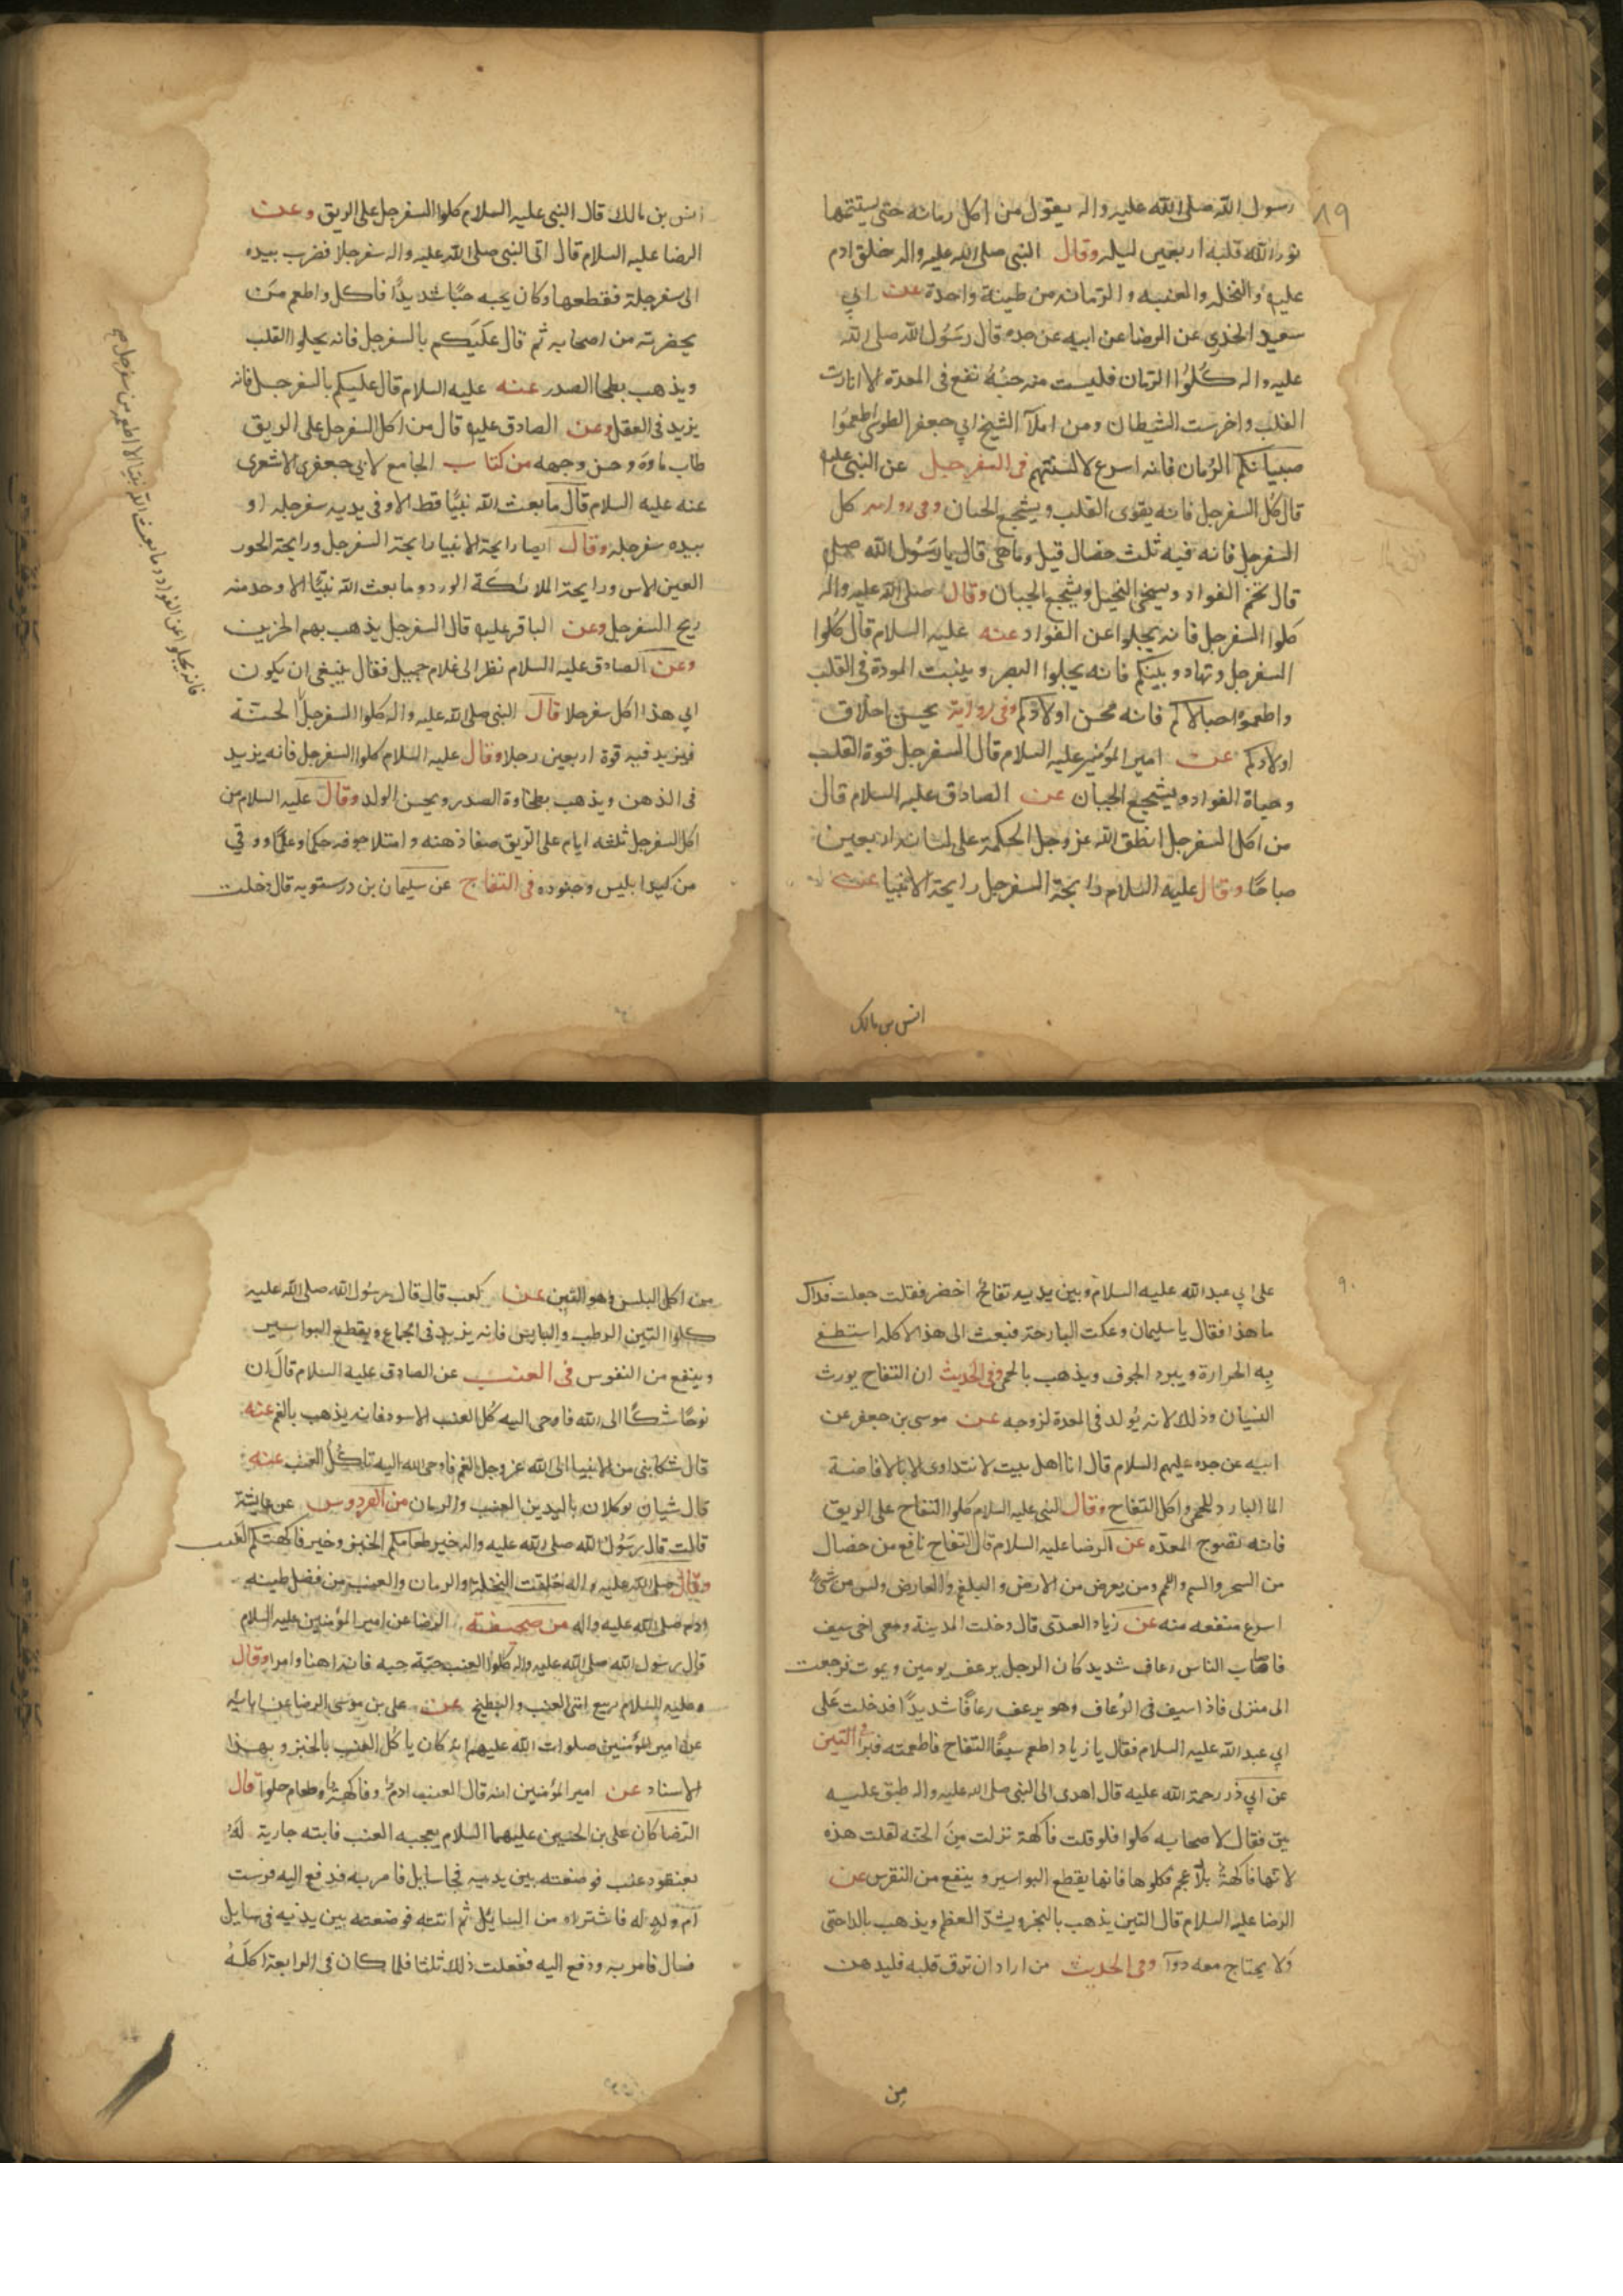 ٨٩
رسول الله صلى الله عليه واله يقول من اكل رمانة حتى يستتمها
نور الله قلبه اربعين ليلة وقال النبي صلى الله عليه واله خلق ادم
عليه والنخلة والعنبه والرمانه من طينة واحدة عن ابي
سعيد الخذري عن الرضا عن ابيه عن جده قال رسول الله صلى الله
عليه واله كلوا الرمان فليست منه حبة تقع في المعدة الا انارت
القلب واخرست الشيطان ومن املآ الشيخ ابي جعفر الطوسي اطعموا
صبيانكم الرمان فانه اسرع لالسنتهم في السفرجل عن النبي عليه
قال كل السفرجل فانه يقوى القلب ويشجع الجبان وفي رواية كل
السفرجل فانه فيه ثلث خصال قيل وماهى قال يا رسول الله صلى
قال تجم الفواد ويسخى البخيل ويشجع الجبان وقال صلى الله عليه واله
كلوا السفرجل فانه يجلوا عن الفواد عنه عليه السلام قال كلوا
السفرجل وتهادوا بينكم فانه يجلوا البصر وينبت المودة في القلب
واطعموا حبالاكم فانه يحسن اولادكم وفي رواية يحسن اخلاق
اولادكم عن امير المؤمنين عليه السلام قال السفرجل قوة القلب
وحياة الفواد ويشجع الجبان عن الصادق عليه السلام قال
من اكل السفرجل انطق الله عز وجل الحكمة على لسانه اربعين
صباحا وقال عليه السلام رايحة السفرجل رايحة الانبيا عن
انس بن مالك
انس بن مالك قال النبي عليه السلام كلوا السفرجل على الريق وعن
الرضا عليه السلام قال اتى النبي صلى الله عليه واله سفرجلا فضرب بيده
الى سفرجلة فقطعها وكان يحبه حبا شديدا فاكل واطعم من
بحضرته من اصحابه ثم قال عليكم بالسفرجل فانه يجلوا القلب
ويذهب بطخا الصدر عنه عليه السلام قال عليكم بالسفرجل فانه
يزيد في العقل وعن الصادق عليه قال من اكل السفرجل على الريق
طاب ماوه وحسن وجهه من كتاب الجامع لابي جعفر الاشعرى
عنه عليه السلام قال ما بعث الله نبيا قط الا وفي يديه سفرجله او
بيده سفرجله وقال ايضا رايحة الانبيا رايحة السفرجل ورايحة الحور
العين الاس ورايحة الملائكة الورد وما بعث الله نبيا الا وجد منه
ريح السفرجل وعن الباقر عليه قال السفرجل يذهب بهم الحزين
وعن الصادق عليه السلام نظر الى غلام جميل فقال ينبغي ان يكون
ابي هذا اكل سفرجلا قال النبي صلى الله عليه واله كلوا السفرجل
فيزيد فيه قوة اربعين رجلا وقال عليه السلام كلوا السفرجل فانه يزيد
في الذهن ويذهب بطخاوة الصدر ويحسن الولد وقال عليه السلام من
اكل السفرجل ثلثه ايام على الريق صفا ذهنه وامتلا جوفه حكما وعلما ووقي
من كيد ابليس وجنوده في التفاح عن سليمان بن درستويه قال دخلت
فانه يجلوا عن الفواد وما بعث الله نبيا الا اطعمه من سفرجل
٩٠
على ابي عبد الله عليه السلام وبين يديه تفاح اخضر فقلت جعلت فداك
ما هذا فقال يا سليمان وعكت البارحة فبعث الى هذا لاكله استطفى
به الحرارة ويبرد الجوف ويذهب بالحمى وفي الحديث ان التفاح يورث
النسيان وذلك لانه يولد في المعدة لزوجه عن موسى بن جعفر عن
ابيه عن جده عليهم السلام قال انا اهل بيت لا نتداوى الا بالافاضة
الما البارد للحمى واكل التفاح وقال النبي عليه السلام كلوا التفاح على الريق
فانه نضوج المعده عن الرضا عليه السلام قال التفاح نافع من خصال
من السحر والسم واللمم ومن يعرض من الارض والبلغم والعارض وليس من شى
اسرع منفعه منه عن زياد العبدى قال دخلت المدينة ومعى اخى سيف
فاصاب الناس رعاف شديد كان الرجل يرعف يومين ويموت فرجعت
الى منزلى فاذا سيف في الرعاف وهو يرعف رعافا شديدا فدخلت على
ابي عبد الله عليه السلام فقال يا زياد اطعم سيفا التفاح فاطعمته فبرأ في التين
عن ابي ذر رحمة الله عليه قال اهدى الى النبي صلى الله عليه واله طبق عليه
تين فقال لاصحابه كلوا فلو قلت فاكهة نزلت من الجنه لقلت هذه
لانها فاكهة بلا عجم فكلوها فانها يقطع البواسير وينفع من النقرس عن
الرضا عليه السلام قال التين يذهب بالبخر ويشد العظم ويذهب بالداحتى
ولا يحتاج معه دوآ وفي الحديث من اراد ان ترق قلبه فليدمن
من
من اكل البلس وهو التين عن كعب قال قال رسول الله صلى الله عليه
كلوا التين الرطب واليابس فانه يزيد في الجماع ويقطع البواسير
وينفع من النقوس في العنب عن الصادق عليه السلام قال ان
نوحا شكا الى الله فاوحى اليه كل العنب الاسود فانه يذهب بالغم عنه
قال شكا نبي من الانبيا الى الله عز وجل الغم فاوحى الله اليه تاكل العنب عنه
قال شيان يوكلان باليدين العنب والرمان من الفردوس عن عايشة
قالت قال رسول الله صلى الله عليه واله خير طعامكم الخبز وخير فاكهتكم العنب
وقال صلى الله عليه واله خلقت النخلة والرمان والعنب من فضل طينه
ادم صلى الله عليه واله من صحيفته الرضا عن امير المؤمنين عليه السلام
قال رسول الله صلى الله عليه واله كلوا العنب حبة حبه فانه اهنا وامرا وقال
عليه السلام ربيع امتى العنب والبطيخ عن على بن موسى الرضا عن ابائه
عن امير المؤمنين صلوات الله عليهم انه كان ياكل العنب بالخبز وبهذا
الاسناد عن امير المؤمنين انه قال العنب ادم وفاكهة وطعام حلوا قال
الرضا كان على بن الحسين عليهما السلام يعجبه العنب فاتته جارية له
بعنقود عنب فوضعته بين يديه فجا سايل فامر به فدفع اليه فرست
ام ولد له فاشتراه من السائل ثم اتته فوضعته بين يديه فجا سايل
فسال فامر به ودفع اليه ففعلت ذلك ثلثا فلما كان في الرابعة اكله